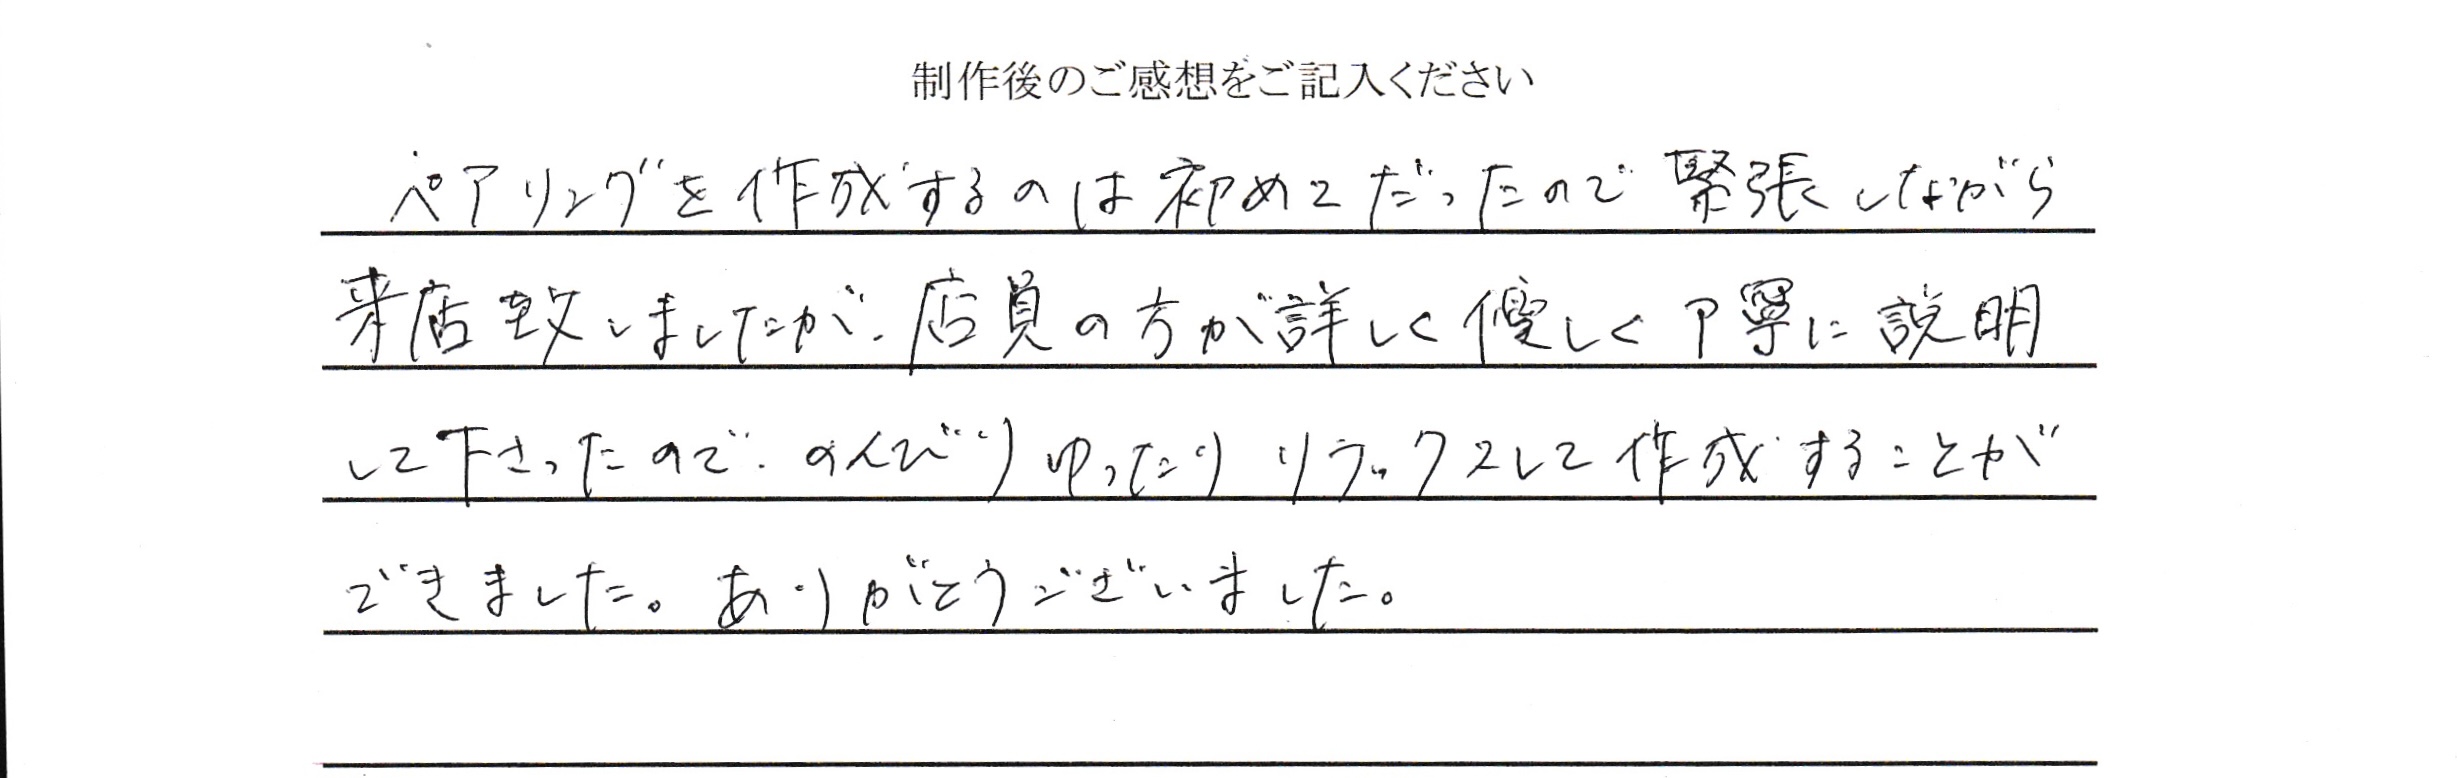 制作後のご感想をご記入ください
ペアリングを作成するのは初めてだったので緊張しながら
来店致しましたが、店員の方が詳しく優しく丁寧に説明
して下さったので、のんびりゆったりリラックスして作成することが
できました。ありがとうございました。